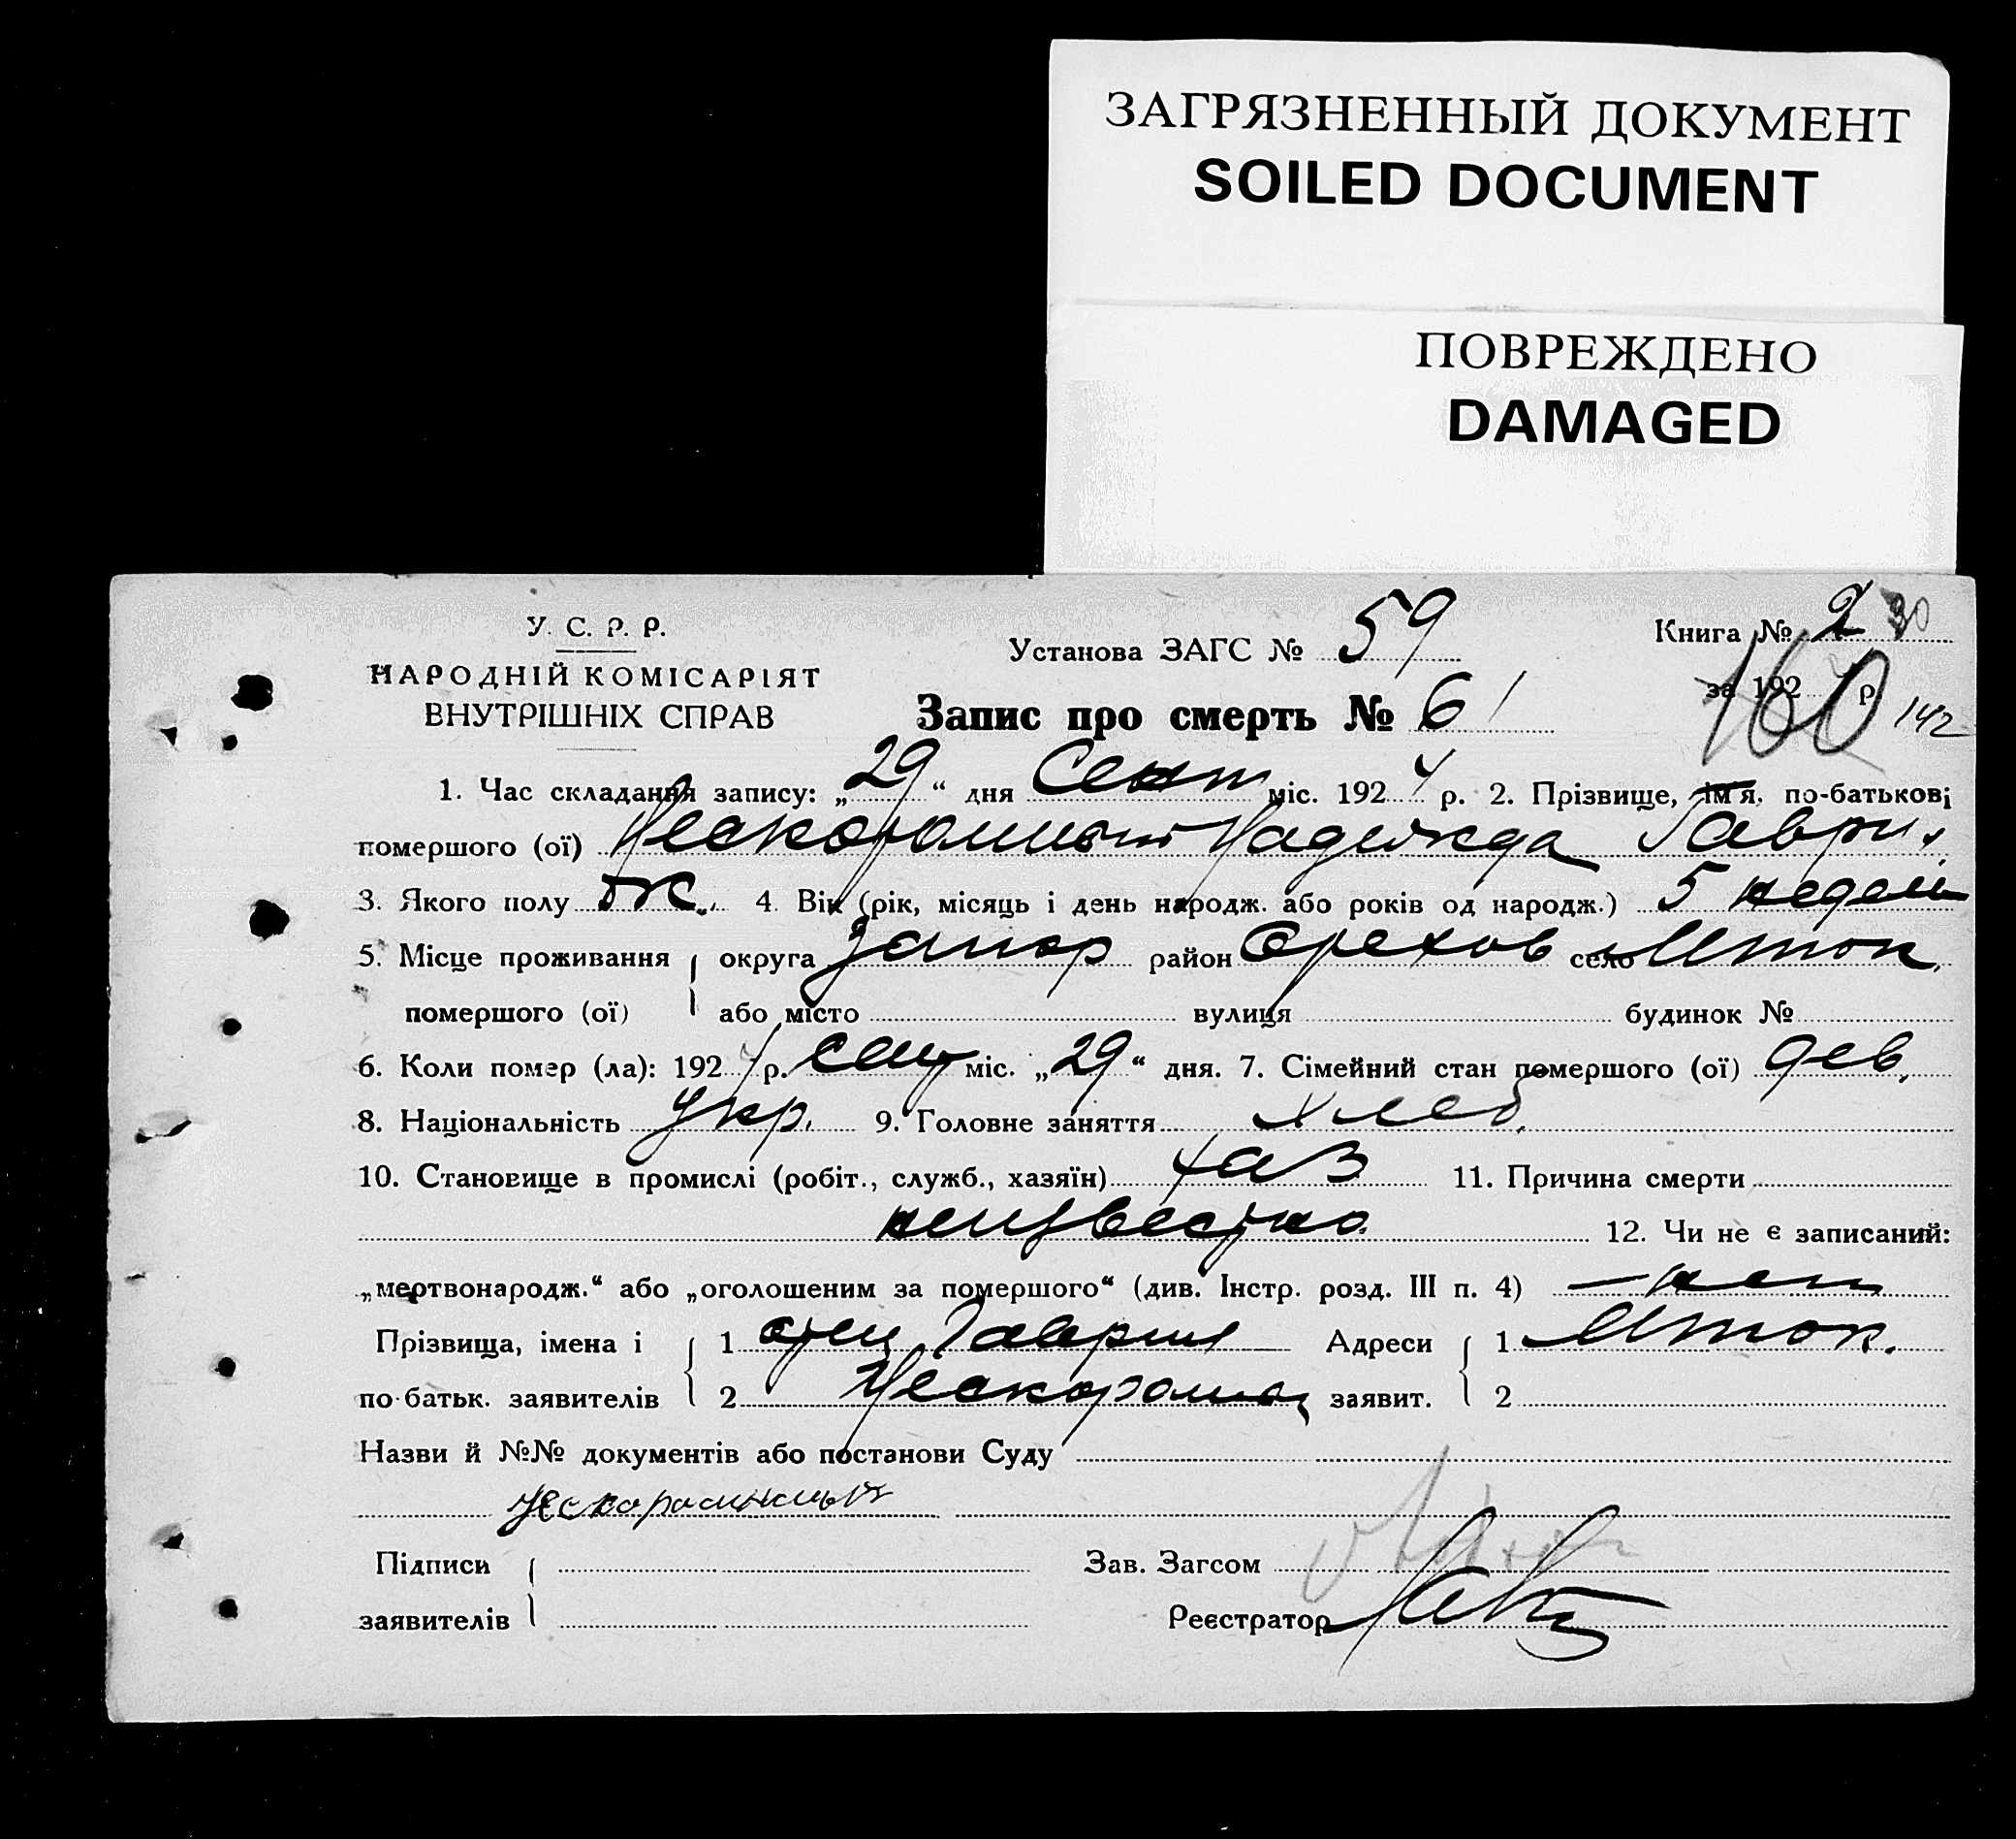 ЗАГРЯЗНЕННЫЙ ДОКУМЕНТ
SOILED DOCUMENT
ПОВРЕЖДЕНО
DAMAGED
У. С. Р. Р.
НАРОДНІЙ КОМІСАРІЯТ
ВНУТРІШНІХ СПРАВ
Установа ЗАГС № 59
Книга № 2 30
за 192 р. 160 142
Запис про смерть № 61
1. Час складання запису: „29“ дня Сент міс. 1924 р. 2. Прізвище, ім'я, по-батькові
помершого (ої) Надежда Гаври.
3. Якого полу ж. 4. Вік (рік, місяць і день народж. або років од народж.) 5 недель
5. Місце проживання округа Запор район Орехов село
помершого (ої) або місто вулиця будинок №
6. Коли помер (ла): 1924 р. сент міс. „29“ дня. 7. Сімейний стан помершого (ої) дев.
8. Національність Укр. 9. Головне заняття Хлеб.
10. Становище в промислі (робіт., служб., хазяїн) хаз 11. Причина смерти
неизвестно. 12. Чи не є записаний:
„мертвонародж.“ або „оголошеним за помершого“ (див. Інстр. розд. III п. 4) — нет
Прізвища, імена і 1 отец Гаврил Адреси 1
по-батьк. заявителів 2 заявит. 2
Назви й №№ документів або постанови Суду
Підписи
Зав. Загсом
заявителів
Реєстратор